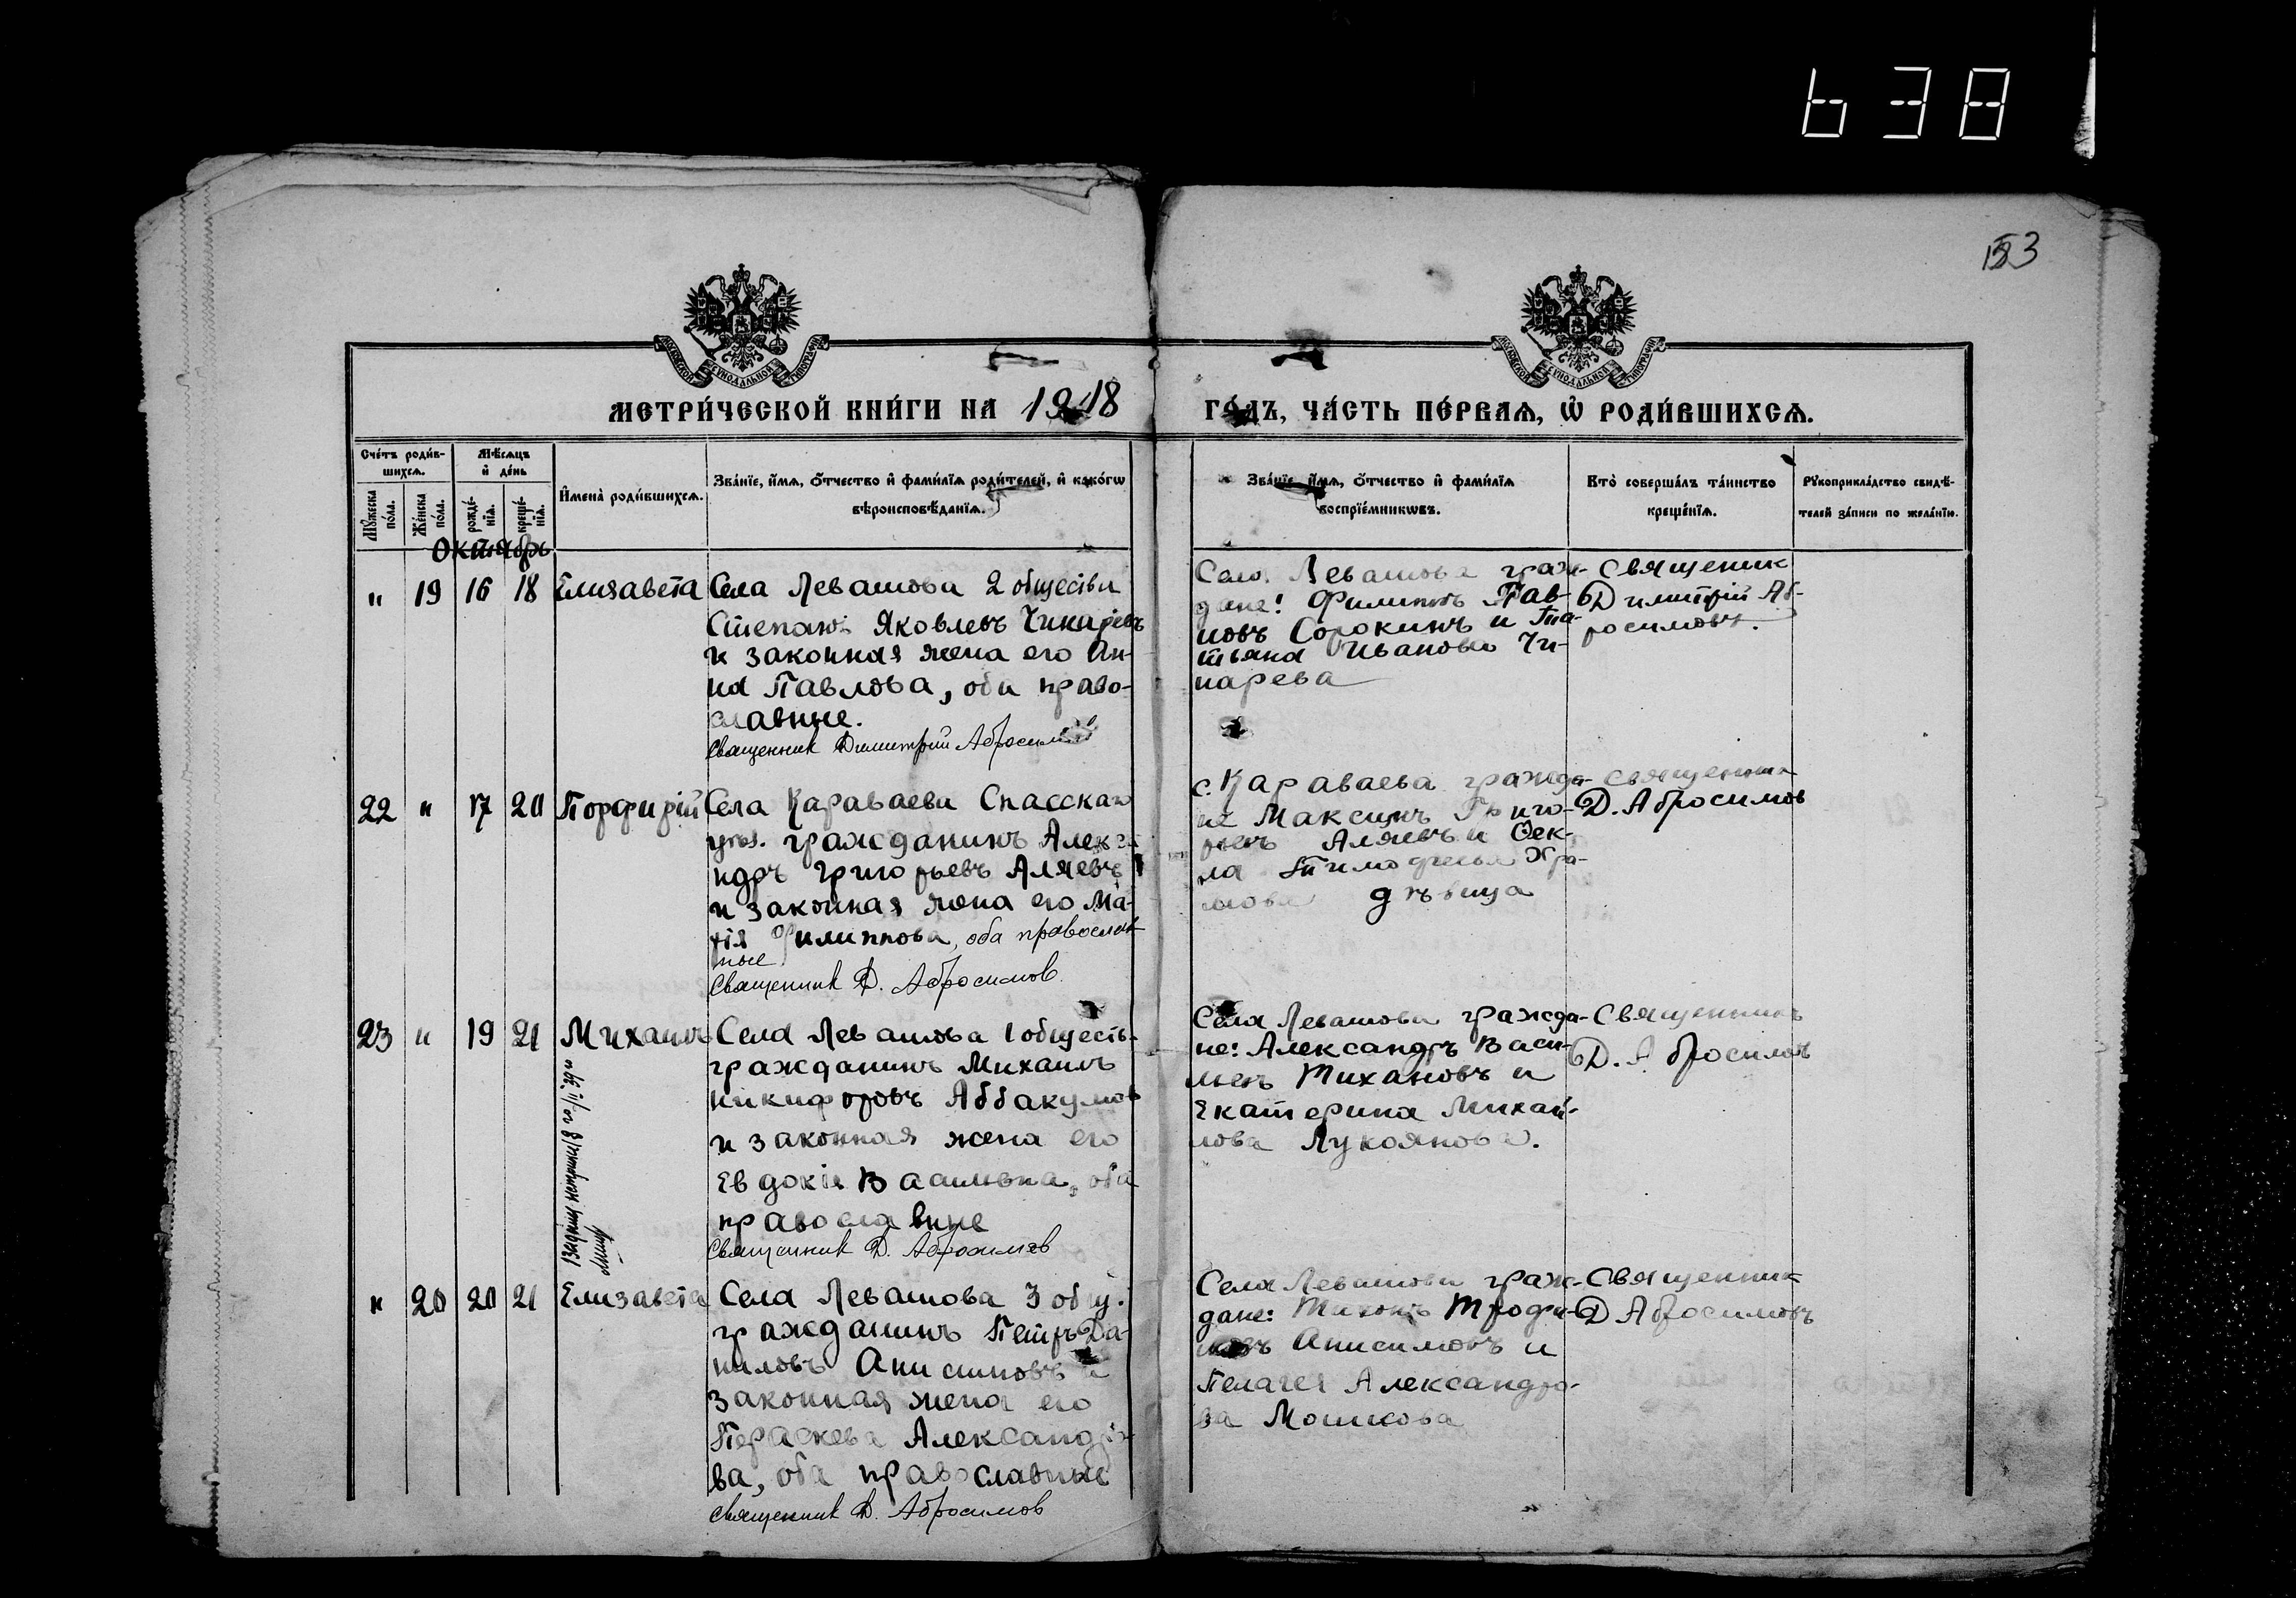 638
153
МОСКОВСКОЙ СѴНОДАЛЬНОЙ ТИПОГРАФІИ
МОСКОВСКОЙ СѴНОДАЛЬНОЙ ТИПОГРАФІИ
МЕТРИ́ЧЕСКОЙ КНИ́ГИ НА 1918 ГО́ДЪ, ЧА́СТЬ ПЕ́РВАѦ, Ѡ҆ РОДИ́ВШИХСѦ.
Сче́тъ роди́в-
шихсѧ.
Мꙋ́жеска по́ла.
Же́нска по́ла.
Мѣ́сѧцъ и҆ де́нь
рожде́-
нїѧ.
креще́-
нїѧ.
И҆мена̀ роди́вшихсѧ.
Зва́нїе, и҆́мѧ, ѻ҆́тчество и҆ фами́лїѧ роди́телей, и҆ како́гѡ
вѣроисповѣ́данїѧ.
Зва́нїе, и҆́мѧ, ѻ҆́тчество и҆ фами́лїѧ
воспрїе́мникѡвъ.
Кто̀ соверша́лъ та́инство
креще́нїѧ.
Рꙋкоприкла́дство свидѣ́-
телей за́писи по жела́нїю.
Октябрь
" 19 16 18 Елизавета
Села Левашова 2 обществ
Степанъ Яковлевъ Чинаревъ
и законная жена его Ан-
на Павлова, оба право-
славные.
Священник Димитрий Абросимов
Села Левашова граж-
дане: Филиппъ Пав-
ловъ Сорокинъ и Та-
тьяна Иванова Чи-
нарева
Священник
Димитрій Аб-
росимовъ.
22 " 17 20 Порфирій
Села Караваева Спасскаго
уѣз. гражданинъ Алекса
ндръ Григорьевъ Аляевъ
и законная жена его Ма-
рія Филиппова, оба православ-
ные
Священник Д. Абросимов
с. Караваева гражда-
не Максимъ Григо-
рьевъ Аляевъ и Ѳек-
ла Тимофеева Хра-
мова дѣвица
Священник
Д. Абросимов
23 " 19 21 Михаилъ
Села Левашова 1 обществ.
гражданинъ Михаилъ
Никифоровъ Аббакумов
и законная жена его
Евдокія Васильевна, оба
православные
Священник Д. Абросимов
Села Левашова гражда-
не: Александръ Васи-
льевъ Тихановъ и
Екатерина Михай-
лова Лукоянова.
Священникъ
Д. Абросимов
" 20 20 21 Елизавета
Села Левашова 3 общ.
гражданинъ Петръ Да-
ниловъ Анисимовъ и
законная жена его
Параскева Александро-
ва, оба православные
Священник Д. Абросимов
Села Левашова граж-
дане: Тихонъ Трофи-
мовъ Анисимовъ и
Пелагея Александро-
ва Мошкова
Священник
Д Абросимовъ